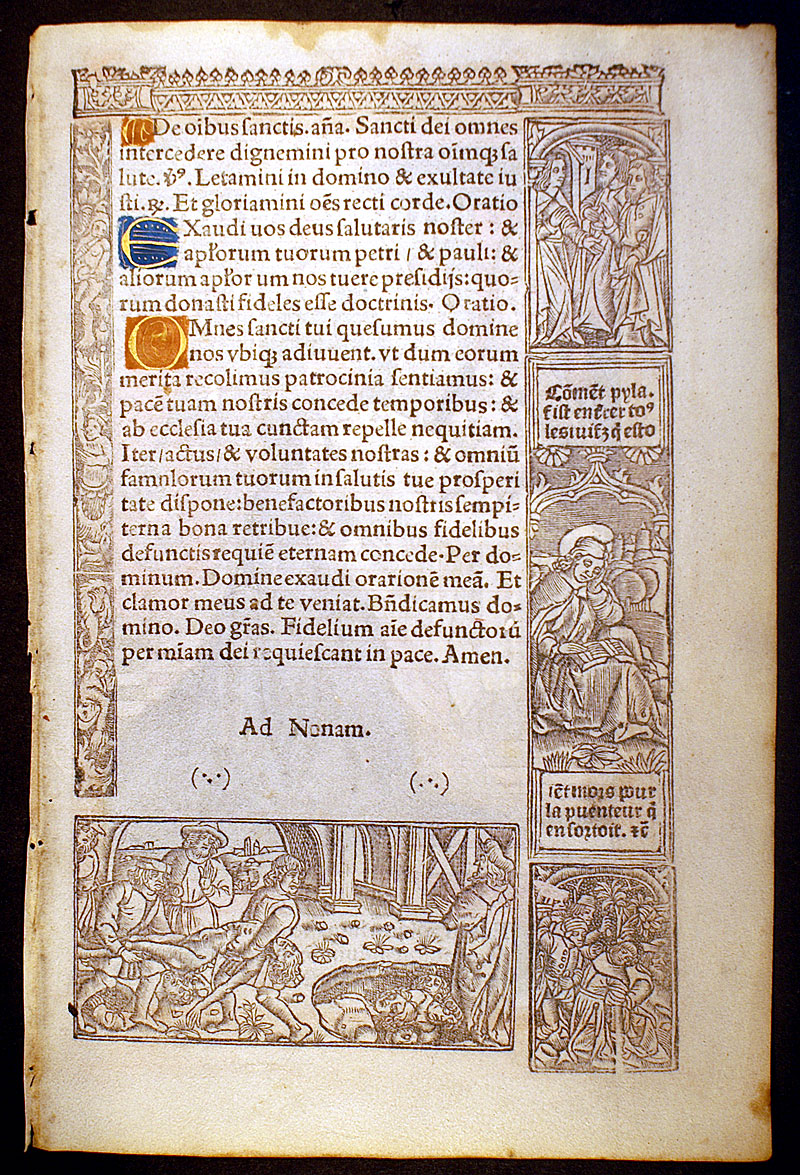 De oibus sanctis. aña. Sancti dei omnes
intercedere dignemini pro nostra oĩmqꝫ sa
lute. ꝟꝰ. Letamini in domino & exultate iu
sti. ꝶ. Et gloriamini oẽs recti corde. Oratio
EXaudi uos deus salutaris noster : &
aplꝛorum tuorum petri / & pauli: &
aliorum aplꝛorum nos tuere presidijs: quo=
rum donasti fideles esse doctrinis. Oratio.
OMnes sancti tui quesumus domine
nos vbiqꝫ adiuuent. vt dum eorum
merita recolimus patrocinia sentiamus: &
pacẽ tuam nostris concede temporibus: &
ab ecclesia tua cunctam repelle nequitiam.
Iter/actus/& voluntates nostras : & omniũ
famnlorum tuorum in salutis tue prosperi
tate dispone: benefactoribus nostris sempi=
terna bona retribue: & omnibus fidelibus
defunctis requiẽ eternam concede. Per do=
minum. Domine exaudi orarionẽ meã. Et
clamor meus ad te veniat. Bñdicamus do=
mino. Deo grãs. Fidelium aĩe defunctorũ
per miam dei requiescant in pace. Amen.
Ad Nonam.
Cõmẽt pyla.
fist en
les iuifꝫ q̃ esto
iẽt mors pour
la puenteur q̃
en sortoit. ⁊c̃